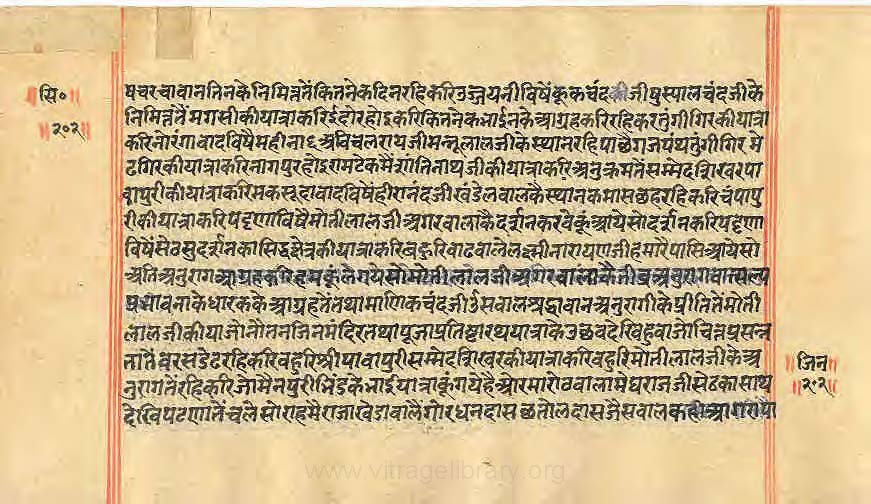 ॥सि०॥
॥२०२॥
षचरचावाननिनकेनिमित्रतेंकितनेकदिनरहिकरिउज्जयनीविषेंकूकचंदकीजीपुस्पालचंदजीकै
निमित्रतैंमगसीकीयात्राकरिइंदोरहोइकरिकितनेकभाईनकेआग्रहकरिरहिकरतुगीगिरकीयात्रा
करिनोरंगावादविषैमहीना६अविचलरायजीमन्नूलालजीकेस्थानरहिपाछैगजपंथतुंगीगिरमे
ढगिरकीयात्राकरिनागपुरहोइरामटेकमैशांतिनाथजीकीयात्राकरिअनुक्रमतैंसम्मेदशिखरपा
वापुरीकीयात्राकरिमकसूदावादविषेंहीरानंदजीखंडेलवालकैस्थानकमासछहरहिकरिचंपापु
रीकीयात्राकरिपट्टणाविषैमोतीलालजीअगरवालाकैदर्शनकरवेकूंआयेसोदर्शनकरिपट्टणा
विषेंसेठसुदर्शनकासिद्धक्षेत्रकीयात्राकरिवहुरिवाढवालेलक्ष्मीनारायणजीहमारैपासिआयेसो
अतिअनुरागआग्रहकरिहमकूंलेगयेसोमोतीलालजीअगरवालाकैतीव्रअनुरागवात्सल्य
प्रभावनाकेधारककेआग्रहतेंतथामाणिकचंदजीउंसवालश्रद्धावानअनुरागीकेप्रीतितेंमोती
लालजीकीयाजोनौतनजिनमंदिरतथापूजाप्रतिष्ठारथयात्राकेउछवदेखिहुवाजोचित्तप्रसन्न
तातेंवरसडेढरहिकरिवहुरिश्रीपावापुरीसम्मेदशिखरकीयात्राकरिवहुरिमोतीलालजीकेअ
नुरागतेंरहिकरिजोमैनपुरीभिंडकेभाईयात्राकूंगयेहैआरमारोठवालामेघराजजीसेठकासाथ
देखिपटणातेंचलेसोराहमैराजाखेडावालैगोरधनदासछतोलदासजैसवालकही
॥जिन॥
॥२०२॥
www.vitragelibrary.org